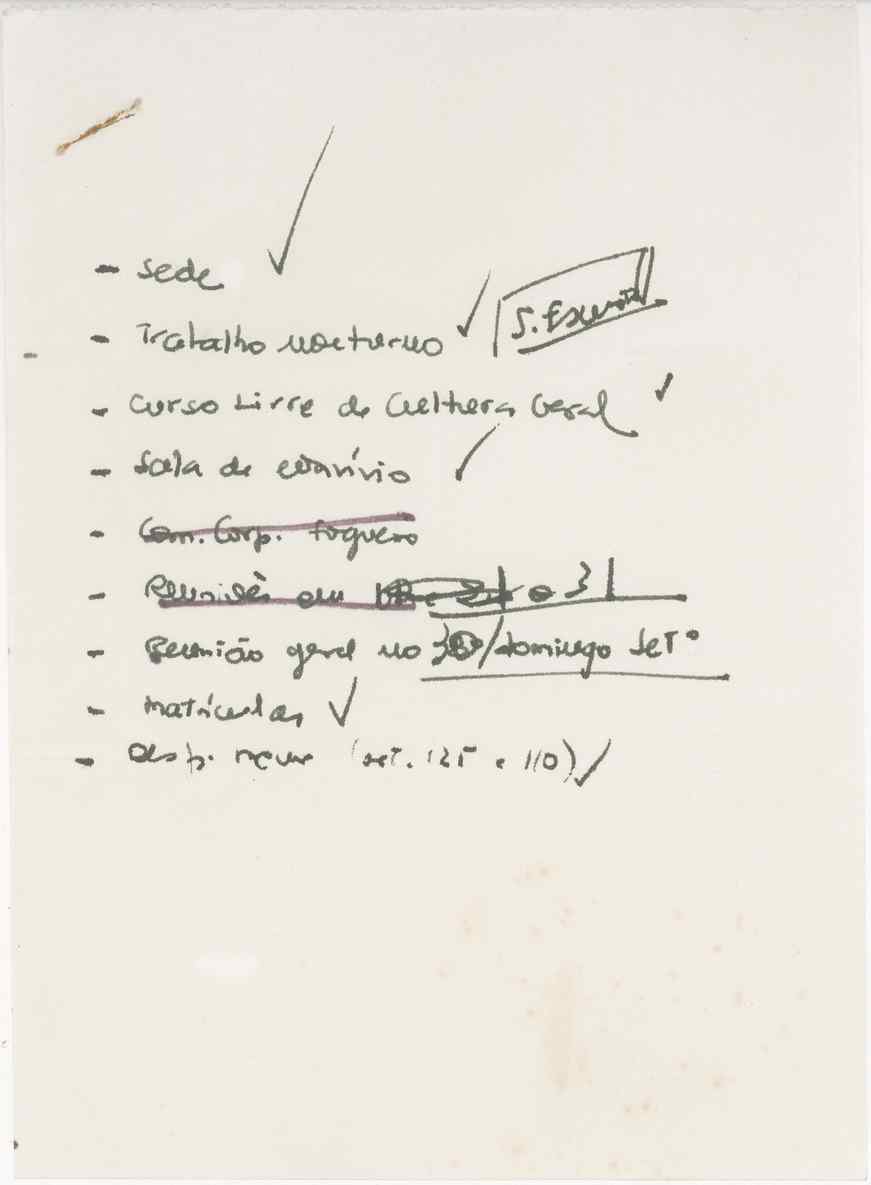 - Sede
- Trabalho nocturno
- Curso Livre de Cultura Geral
- Sala de convívio
- Com. Corp.
- Reuniões em
- Reunião geral no /domingo Setº
- Matrículas
- Desp. (set. 125 e 110)